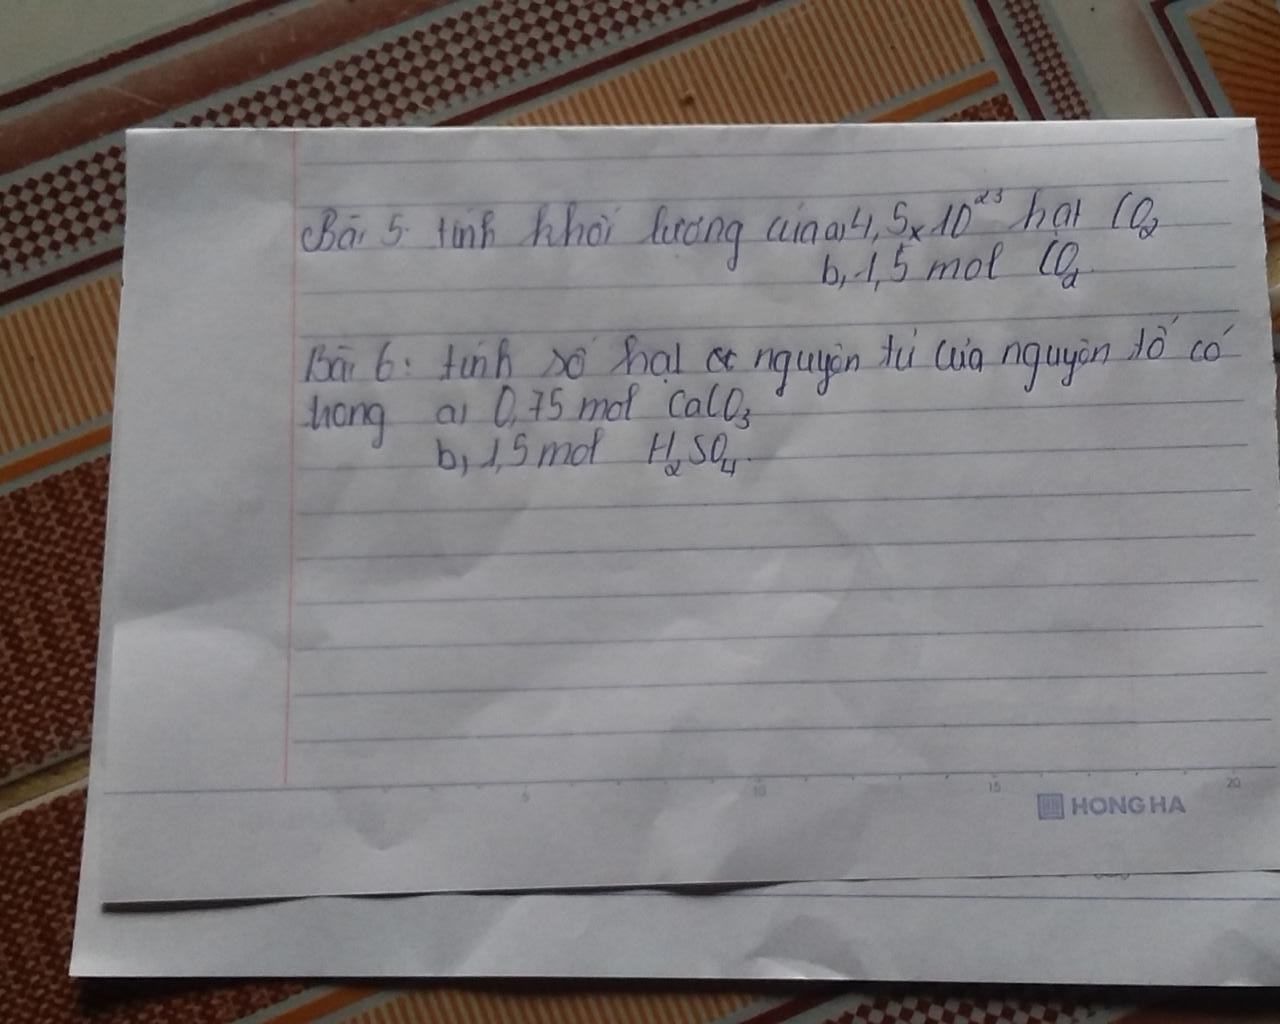 Bài 5. tính khối lượng của a, 4,5x10²³ hạt CO₂
b, 1,5 mol CO₂.
Bài 6: tính số hạt nguyên tử của nguyên tố có
trong a, 0,75 mol CaCO₃
b, 1,5 mol H₂SO₄.
5 10 15 20
HONG HA